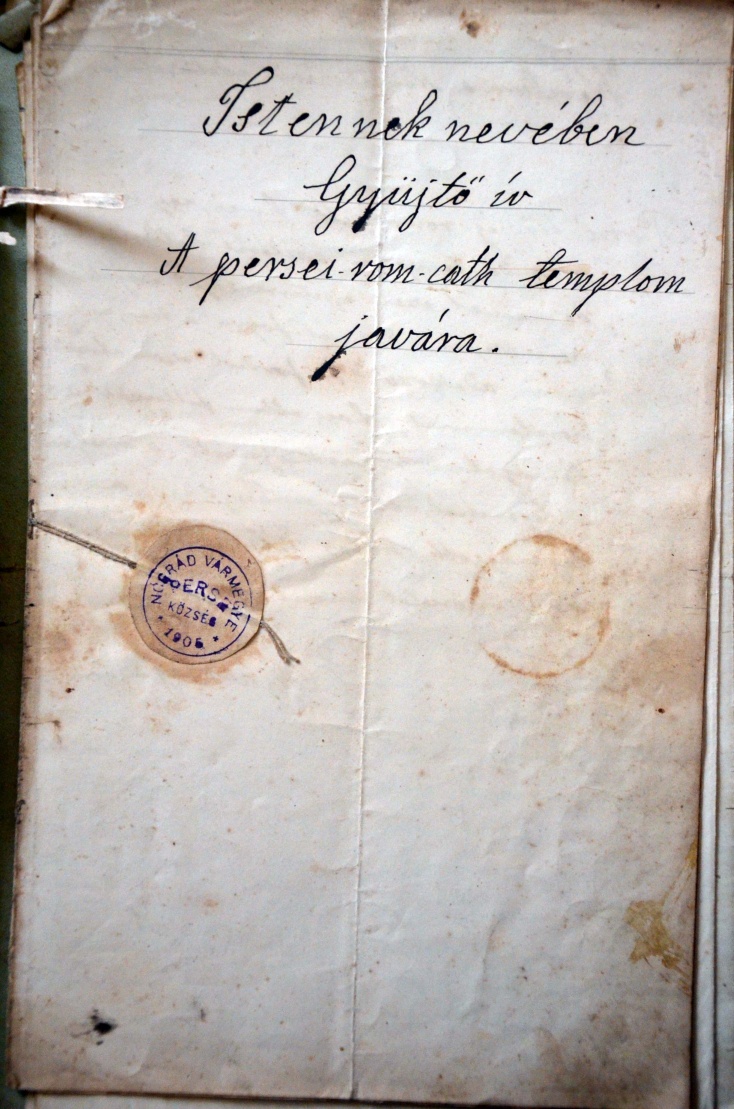 Istennek nevében
Gyüjtő ív
A persei-rom-cath templom
javára.
NÓGRÁD VÁRMEGYE
PERSE
KÖZSÉG
* 1906 *